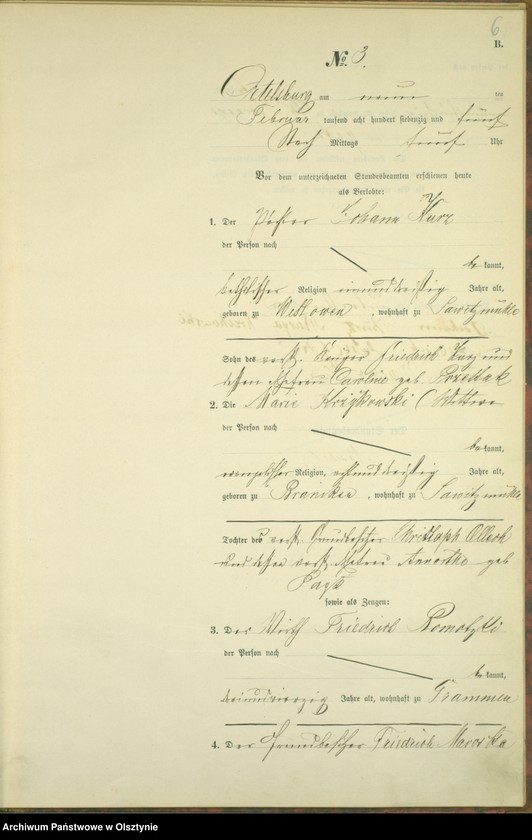 6.
B.
No. 3.
Ortelsburg am neun ten
Februar tausend acht hundert siebenzig und fünf
Nach Mittags fünf Uhr
Vor dem unterzeichneten Standesbeamten erschienen heute
als Verlobte:
1. Der Johann Kurz
der Person nach
be kannt,
katholischer Religion einunddreißig Jahre alt,
geboren zu , wohnhaft zu Sawitzmühle
Sohn des verst. Friedrich Kurz und
dessen Ehefrau Caroline geb.
2. Die Marie Krzykowski (Wittwe
der Person nach
be kannt,
evangelischer Religion, achtunddreißig Jahre alt,
geboren zu , wohnhaft zu Sawitzmühle
Tochter des verst. Grundbesitzer Christoph Olleck
und dessen verst. Ehefrau geb
sowie als Zeugen:
3. Der Wirth Friedrich Romotzki
der Person nach
be kannt,
dreiundvierzig Jahre alt, wohnhaft zu Grammen
4. Der Grundbesitzer Friedrich
Archiwum Państwowe w Olsztynie